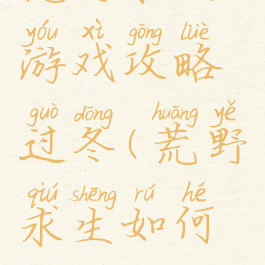 yóu xì gōng lüè
游戏攻略
guò dōng huāng yě
过冬(荒野
qiú shēng rú hé
求生如何